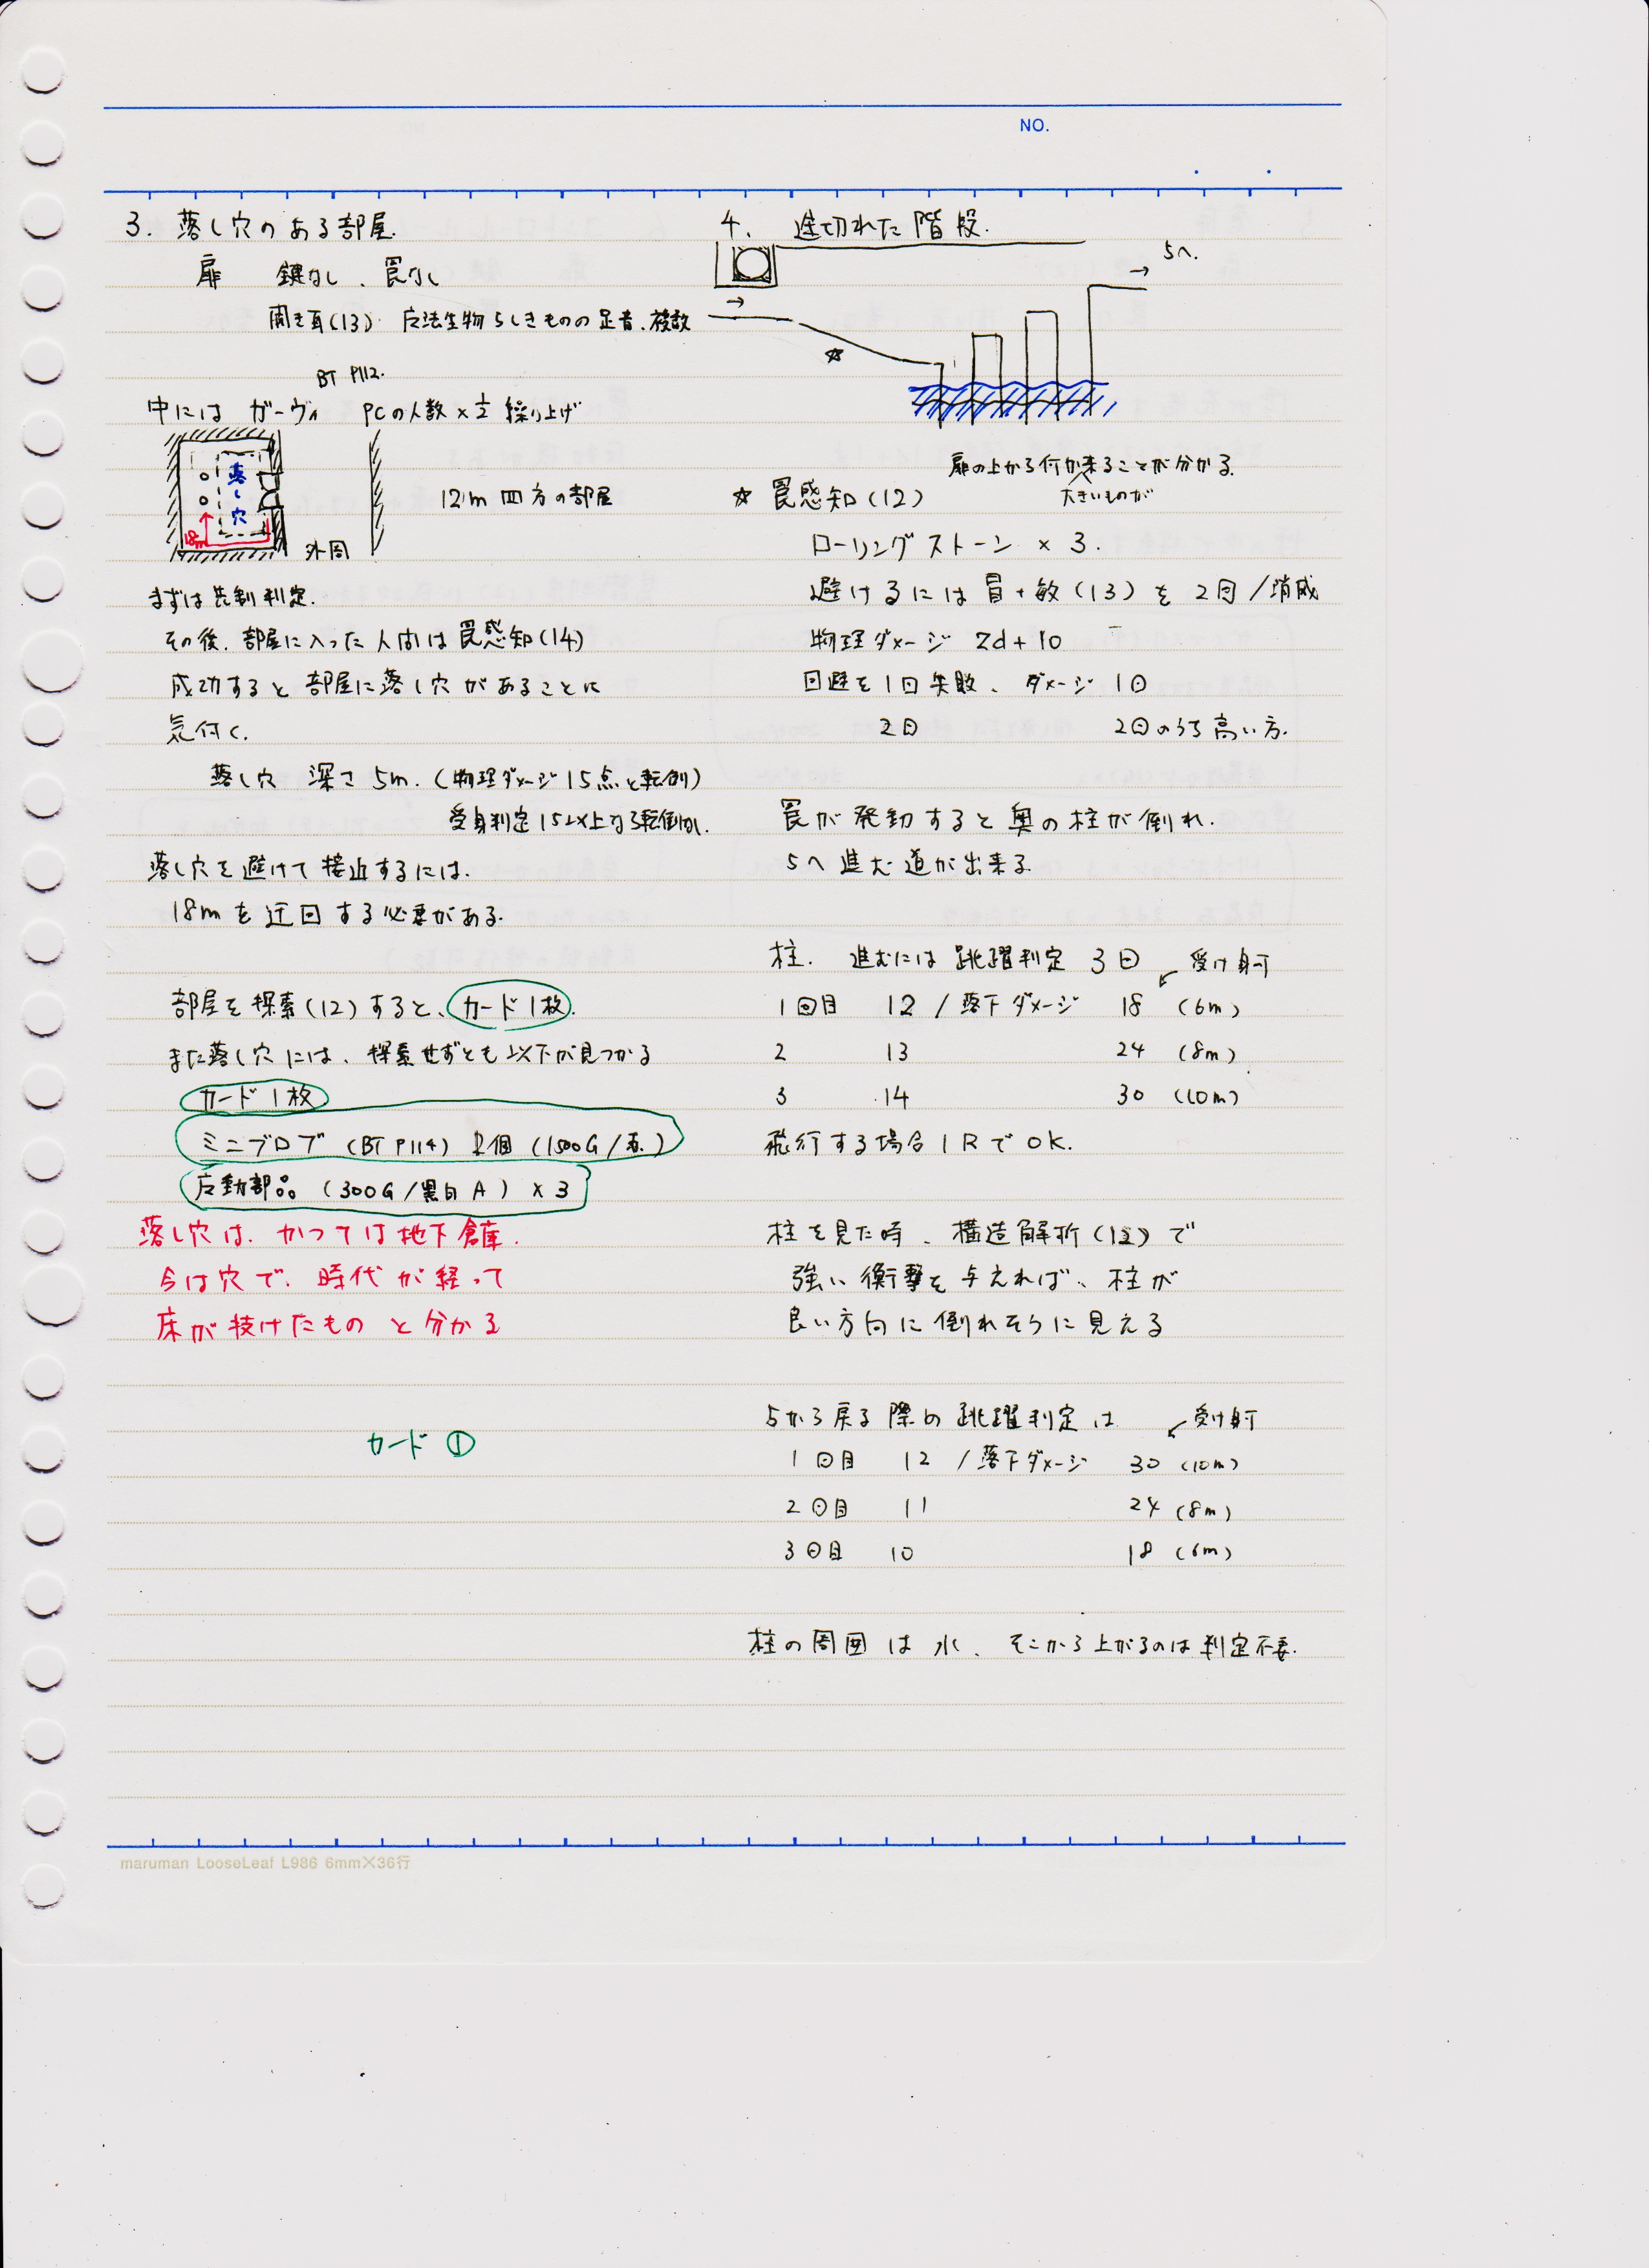 NO.
3. 落し穴のある部屋.
扉 鍵なし、罠なし
聞き耳(13) 魔法生物らしきものの足音、複数
BT P112.
中には ガーヴィ PCの人数×1/2 繰り上げ
落し穴
18m
12m 四方の部屋
外周
まずは先制判定.
その後、部屋に入った人間は罠感知(14)
成功すると部屋に落し穴があることに
気付く.
落し穴 深さ 5m. (物理ダメージ15点と転倒)
受身判定15以上なら転倒なし.
落し穴を避けて接近するには.
18mを迂回する必要がある.
部屋を探索(12)すると、カード1枚.
また落し穴には、探索せずとも以下が見つかる
カード1枚
ミニブロブ (BT P114) 1個 (1500G/ )
魔動部品 (300G/黒白A) ×3
落し穴は、かつては地下倉庫.
今は穴で、時代が経って
床が抜けたもの と分かる
カード ①
4. 途切れた階段.
5へ.
→
→
☆
扉の上から何か来ることが分かる.
大きいものが
☆ 罠感知(12)
ローリングストーン × 3.
避けるには冒+敏(13)を2回/消滅
物理ダメージ 2d+10
回避を1回失敗、ダメージ 1回
2回 2回のうち高い方.
罠が発動すると奥の柱が倒れ.
5へ進む道が出来る
柱. 進むには跳躍判定 3回 ↙ 受け身可
1回目 12 /落下ダメージ 18 (6m)
2 13 24 (8m)
3 14 30 (10m)
飛行する場合1RでOK.
柱を見た時、構造解析( )で
強い衝撃を与えれば、柱が
良い方向に倒れそうに見える
5から戻る際の跳躍判定は ↙ 受け身可
1回目 12 /落下ダメージ 30 (10m)
2回目 11 24 (8m)
3回目 10 18 (6m)
柱の周囲は水、そこから上がるのは判定不要.
maruman LooseLeaf L986 6mm×36行